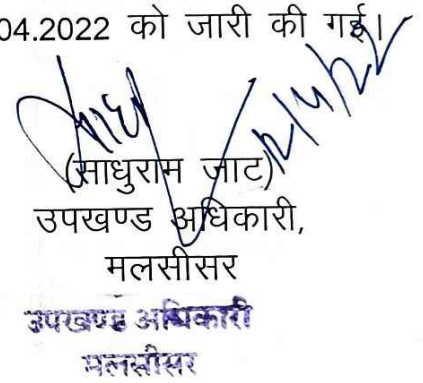 04.2022 को जारी की गई।
12/4/22
(साधुराम जाट)
उपखण्ड अधिकारी,
मलसीसर
उपखण्ड अधिकारी
मलसीसर